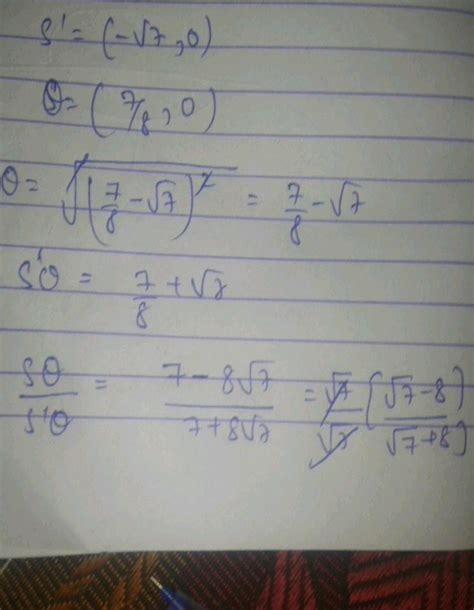 S' = (-√7, 0)
Q = (7/8, 0)
Q = √((7/8 - √7)²) = 7/8 - √7
S'Q = 7/8 + √7
SQ/S'Q = (7 - 8√7)/(7 + 8√7) = √7/√7 [(√7 - 8)/(√7 + 8)]